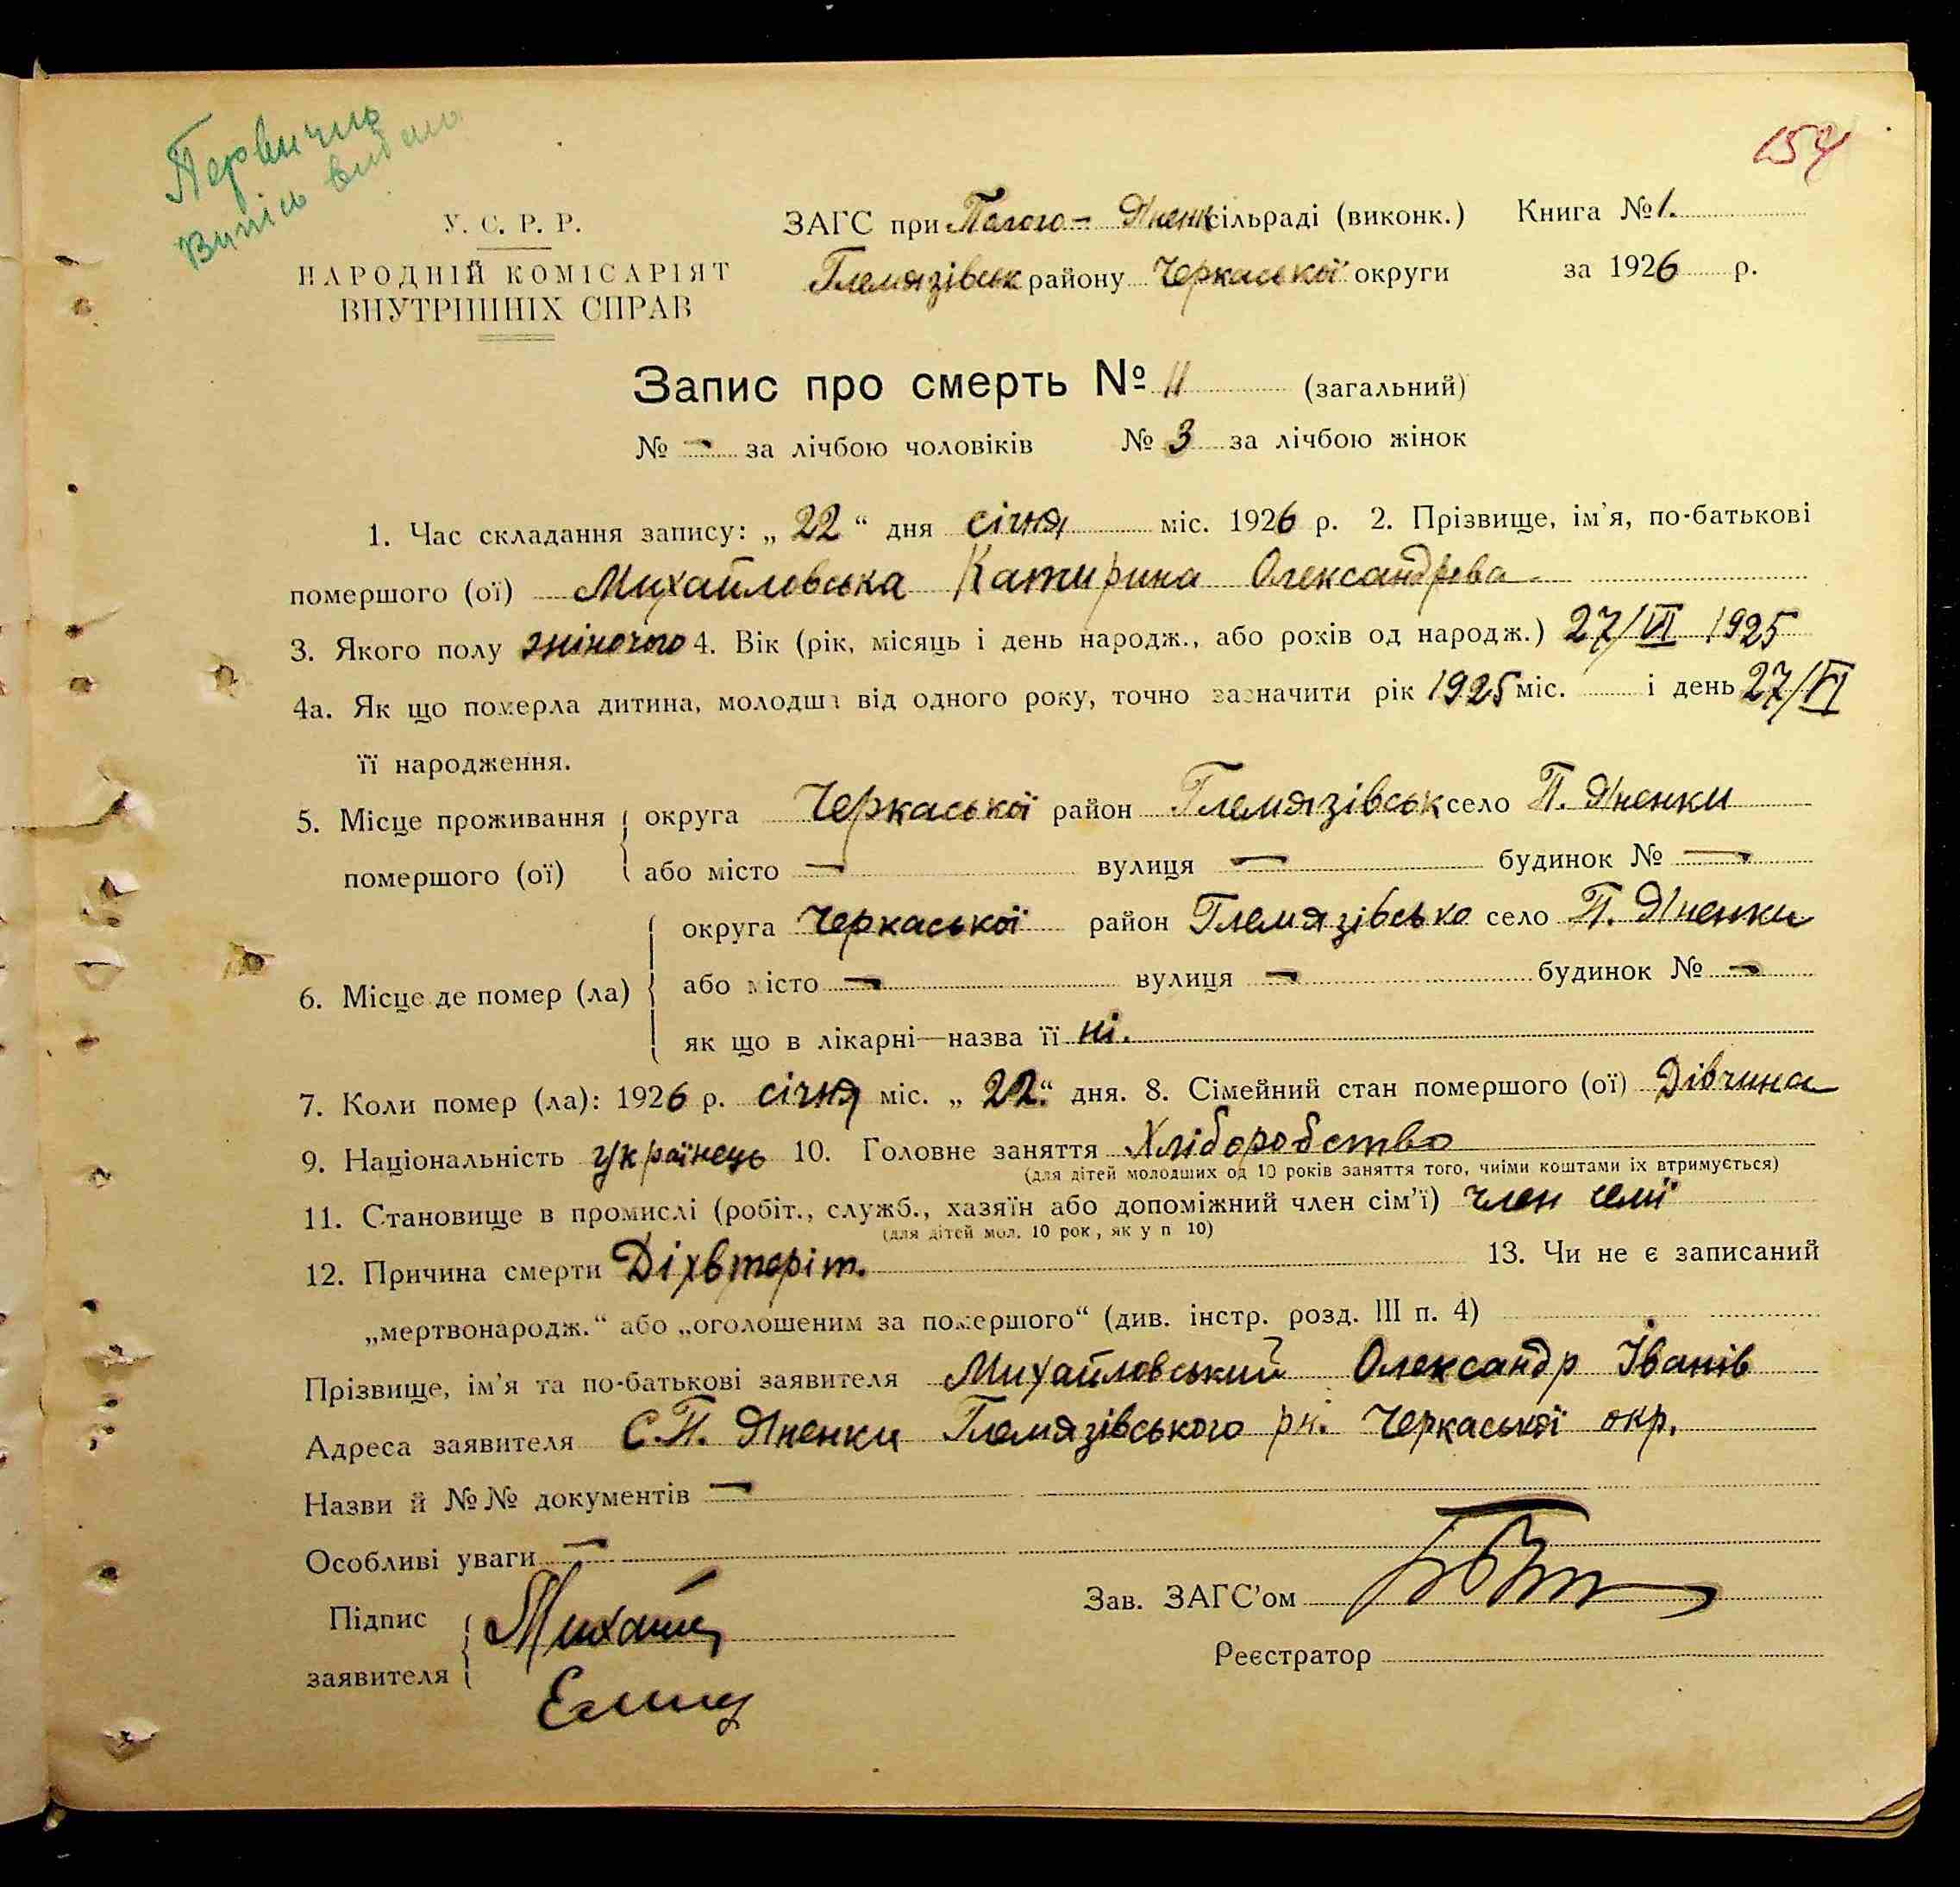 Первично
Випісь видано
154
У. С. Р. Р.
НАРОДНІЙ КОМІСАРІЯТ
ВНУТРІШНІХ СПРАВ
ЗАГС при Полого-Яненк сільраді (виконк.) Книга № 1.
Гелмязівськ району Черкаської округи за 1926 р.
Запис про смерть № 11 (загальний)
№ — за лічбою чоловіків № 3 за лічбою жінок
1. Час складання запису: „ 22 “ дня січня міс. 1926 р. 2. Прізвище, ім'я, по-батькові
помершого (ої) Михайловська Катирина Олександрова
3. Якого полу жіночого 4. Вік (рік, місяць і день народж., або років од народж.) 27/VI 1925
4а. Як що померла дитина, молодша від одного року, точно зазначити рік 1925 міс. і день 27/VI
її народження.
5. Місце проживання помершого (ої) округа Черкаської район Гелмязівськ село П. Яненки
або місто — вулиця — будинок № —
6. Місце де помер (ла) округа Черкаської район Гелмязівсько село П. Яненки
або місто — вулиця — будинок № —
як що в лікарні—назва її ні.
7. Коли помер (ла): 1926 р. січня міс. „ 22 “ дня. 8. Сімейний стан помершого (ої) Дівчина
9. Національність українець 10. Головне заняття Хліборобство
(для дітей молодших од 10 років заняття того, чиїми коштами їх втримується)
11. Становище в промислі (робіт., служб., хазяїн або допоміжний член сім'ї) член семї
(для дітей мол. 10 рок, як у п 10)
12. Причина смерти Діхвтеріт. 13. Чи не є записаний
„мертвонародж.“ або „оголошеним за помершого“ (див. інстр. розд. III п. 4)
Прізвище, ім'я та по-батькові заявителя Михайловський Олександр Іванів
Адреса заявителя С.П. Яненки Гелмязівського рн. Черкаської окр.
Назви й №№ документів —
Особливі уваги —
Підпис заявителя
Зав. ЗАГС'ом
Реєстратор